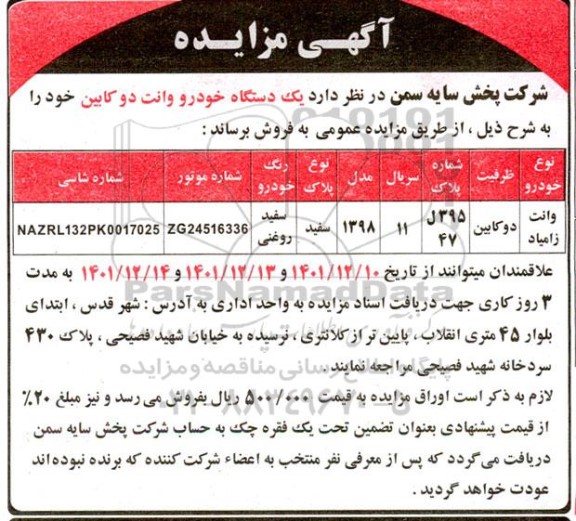 آگهی مزایده
شرکت پخش سایه سمن در نظر دارد یک دستگاه خودرو وانت دو کابین خود را
به شرح ذیل ، از طریق مزایده عمومی به فروش برساند :
نوع خودرو ظرفیت شماره پلاک سریال مدل نوع پلاک رنگ خودرو شماره موتور شماره شاسی
وانت زامیاد دوکابین ۳۹۵ل۴۷ ۱۱ ۱۳۹۸ سفید سفید روغنی ZG24516336 NAZRL132PK0017025
علاقمندان میتوانند از تاریخ ۱۴۰۱/۱۲/۱۰ و ۱۴۰۱/۱۲/۱۳ و ۱۴۰۱/۱۲/۱۴ به مدت
۳ روز کاری جهت دریافت اسناد مزایده به واحد اداری به آدرس : شهر قدس ، ابتدای
بلوار ۴۵ متری انقلاب ، پایین تر از کلانتری ، نرسیده به خیابان شهید فصیحی ، پلاک ۴۳۰
سردخانه شهید فصیحی مراجعه نمایند .
لازم به ذکر است اوراق مزایده به قیمت ۵۰۰/۰۰۰ ریال بفروش می رسد و نیز مبلغ ۲۰٪
از قیمت پیشنهادی بعنوان تضمین تحت یک فقره چک به حساب شرکت پخش سایه سمن
دریافت می گردد که پس از معرفی نفر منتخب به اعضاء شرکت کننده که برنده نبوده اند
عودت خواهد گردید .
ParsNamadData
پایگاه اطلاع رسانی مناقصه و مزایده
۰۲۱-۸۸۳۴۹۶۷۰-۵